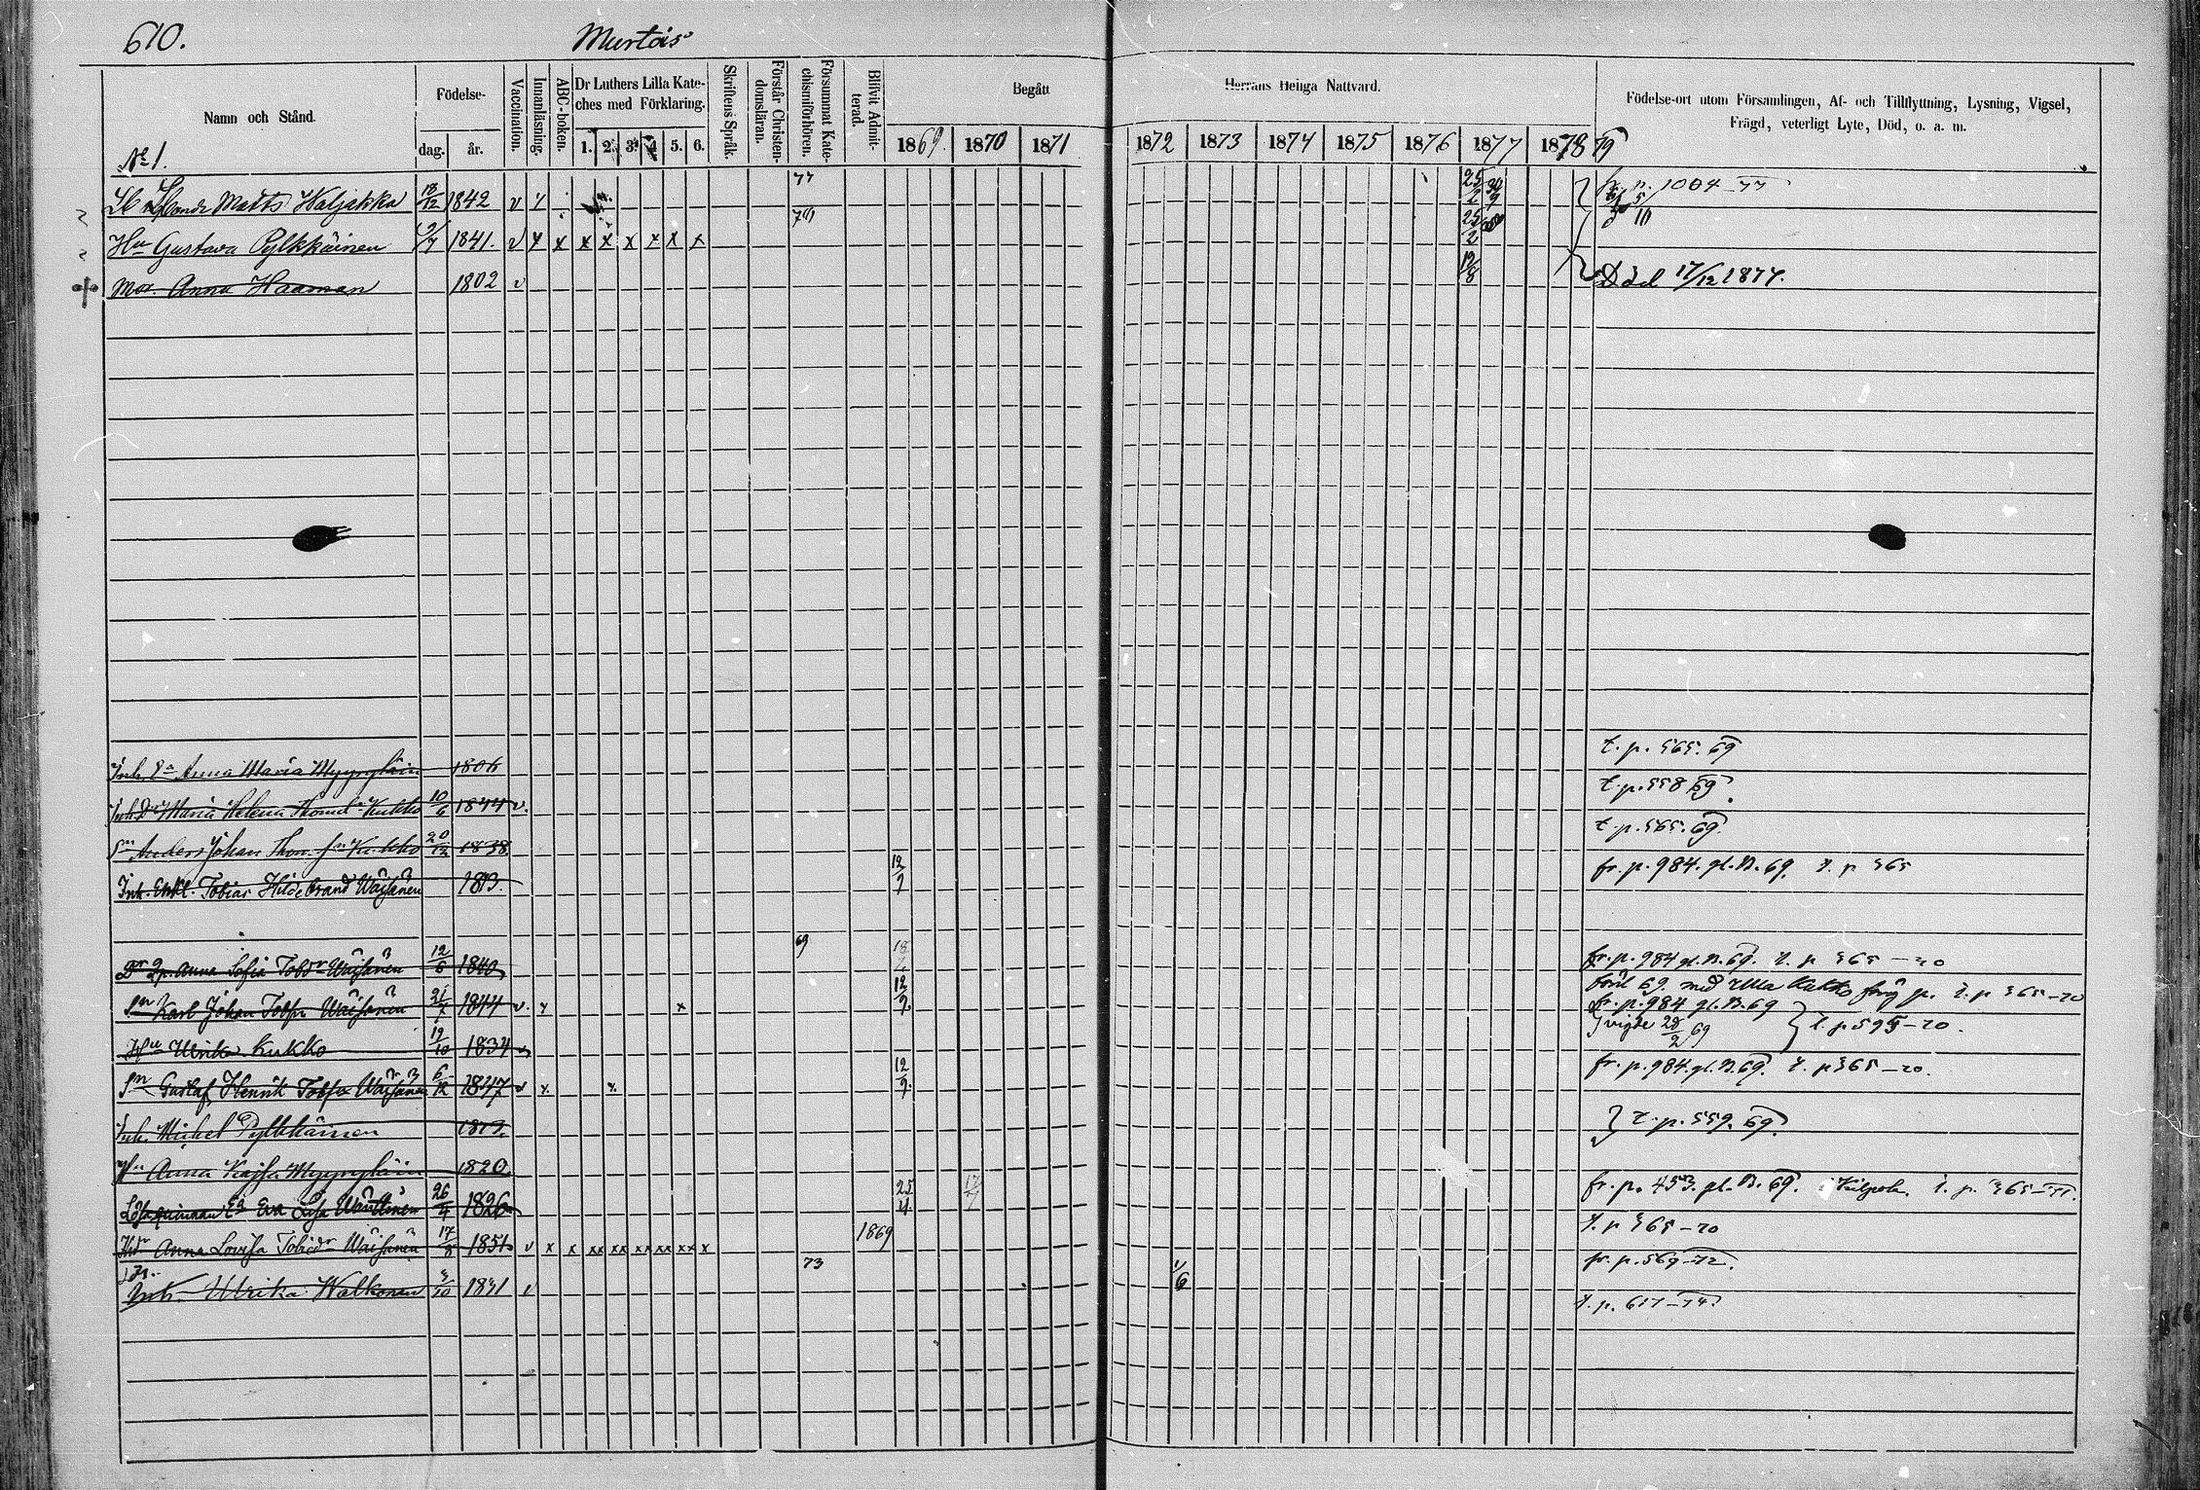 610.
Murtois
Namn och Stånd.
Födelse-
dag.
år.
Vaccination.
Innanläsning.
ABC-boken.
Dr Luthers Lilla Kate-
ches med Förklaring.
1. 2. 3. 4 5. 6.
Skriftens Språk.
Förstår Christen-
domsläran.
Försummat Kate-
chismiförhören.
Blifvit Admit-
terad.
Begått
Herrans Heliga Nattvard.
1869. 1870 1871
1872 1873 1874 1875 1876 1877 1878 79
Födelse-ort utom Församlingen, Af- och Tillflyttning, Lysning, Vigsel,
Frägd, veterligt Lyte, Död, o. a. m.
No 1.
Matts Haljakka 18/12 1842 v 77 25/2 30/9 1004-77
Hu Gustava Pylkkäinen 9/7 1841. v x x x x x x x x 25/2
Mor. Anna Haaman 1802 v 19/8 Död 17/12 1877.
Inh. Ea Anna Maria Myyryläin 1806 t. p. 565. 69
Inh. Dr Maria Helena Thomd. Kukko 10/9 1844 v. t. p. 558 69.
Sn Anders Johan Thom. sn Kukko 20/12 1838. t. p. 565. 69.
Inh. Enkl. Tobias Hildebrand Wäisänen 1813. 12/9 fr. p. 984. gl. B. 69. t. p 565
Dr Anna Sofia Tobdr Wäisänen 12/6 1840, 69 fr. p. 984 gl. B. 69. t. p 565-70
Sn Karl Johan Tobsn Wäisänen 21/7 1844 v. x x 12/9. fr. p. 984 gl. B. 69
vigde 28/2 69 t. p 595-70.
Hu Ulrika Kukko 19/10 1834 v
Sn Gustaf Henrik Tobsn Wäisänen 6/12 1847 v x. x. 12/9. fr. p. 984. gl. B. 69. t. p 565-70.
Inh. Michel Pylkkäinen 1819. t. p. 559. 69.
Hu Anna Kajsa Myyryläin 1820.
Eva Lisa 26/4 1826 25/4. fr. p. 453. gl. B. 69. t. p. 565-71.
Anna Lovisa Tobiædr Wäisänen 17/8 1851 v x x xx xx xx xx xx x 1869 t. p 565-70
Inh. Ulrika Walkonen 3/10 1831 v 73 1/6 fr. p. 569-72.
t. p. 617-74.